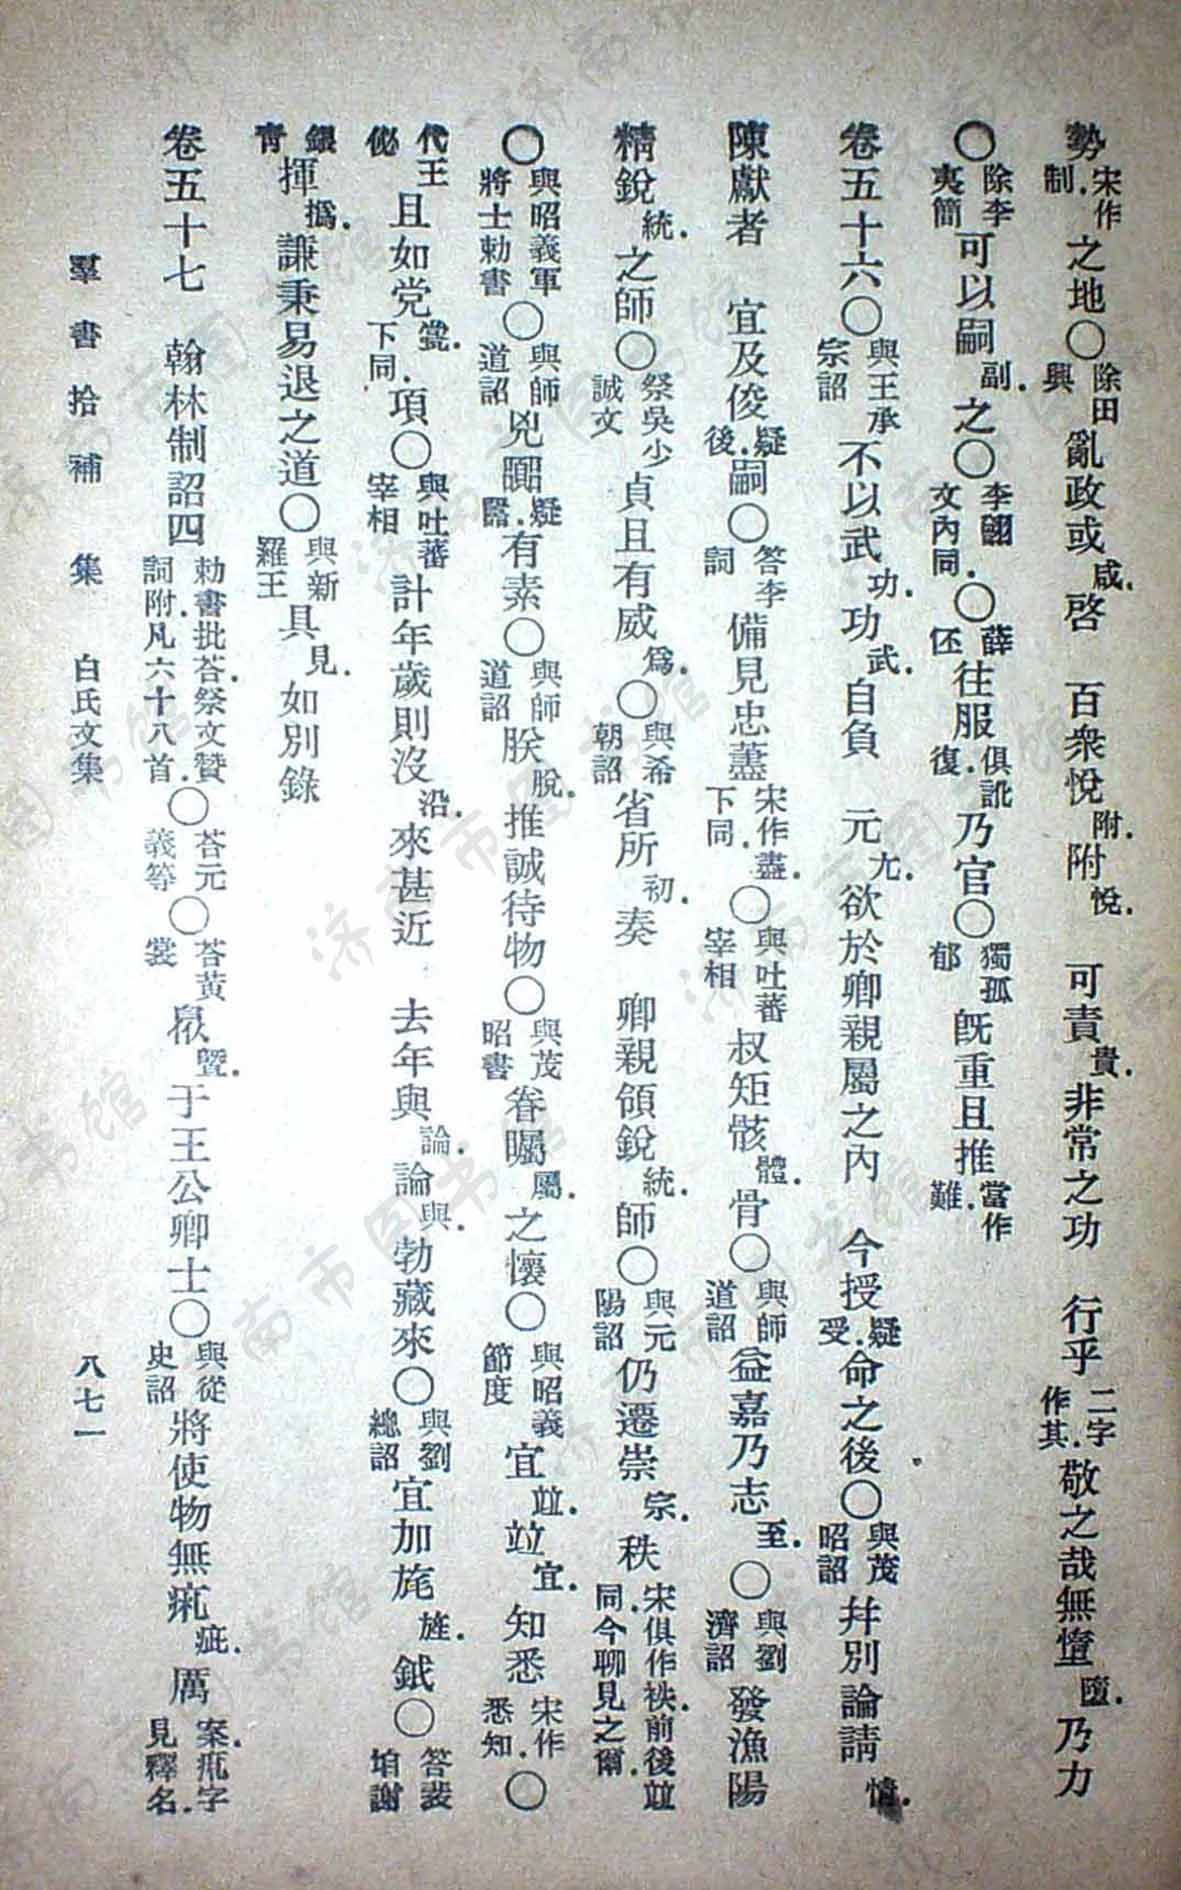 勢宋作制．之地〇除田興亂政或咸．啓　百衆悅附．附悅．　可責貴．非常之功　行乎二字作其．敬之哉無墮墮．乃力
〇除李夷簡可以嗣副．之〇李翺文內同．〇薛伾往服俱訛復．乃官〇獨孤郁既重且推當作難．
卷五十六〇與王承宗詔不以武功．功武．自負　元尤．欲於卿親屬之內　今授疑受．命之後〇與茂昭詔幷別論請情．
陳獻者　宜及俊疑後．嗣〇答李詞備見忠藎宋作盡．下同．〇與吐蕃宰相叔矩骸體．骨〇與師道詔益嘉乃志至．〇與劉濟詔發漁陽
精銳統．之師〇祭吳少誠文貞且有威爲．〇與希朝詔省所初．奏　卿親領銳統．師〇與元陽詔仍遷崇宗．秩宋俱作袟．前後竝同．今聊見之爾．
〇與昭義軍將士勅書〇與師道詔兇疑嚚．有素〇與師道詔朕脫．推誠待物〇與茂昭書眷矚屬．之懷〇與昭義節度宜竝．竝宜．知悉宋作悉知．〇
代王佖且如党甏．下同．項〇與吐蕃宰相計年歲則沒沿．來甚近　去年與論．論與．勃藏來〇與劉總詔宜加旄旌．鉞〇答裴垍謝
銀靑揮撝．謙秉易退之道〇與新羅王具見．如別錄
卷五十七　翰林制詔四勅書批荅．祭文贊詞附．凡六十八首．〇荅元義等〇荅黃裳泉曁．于王公卿士〇與從史詔將使物無疵疵．厲案．疵字見釋名．
羣書拾補　集　白氏文集　八七一